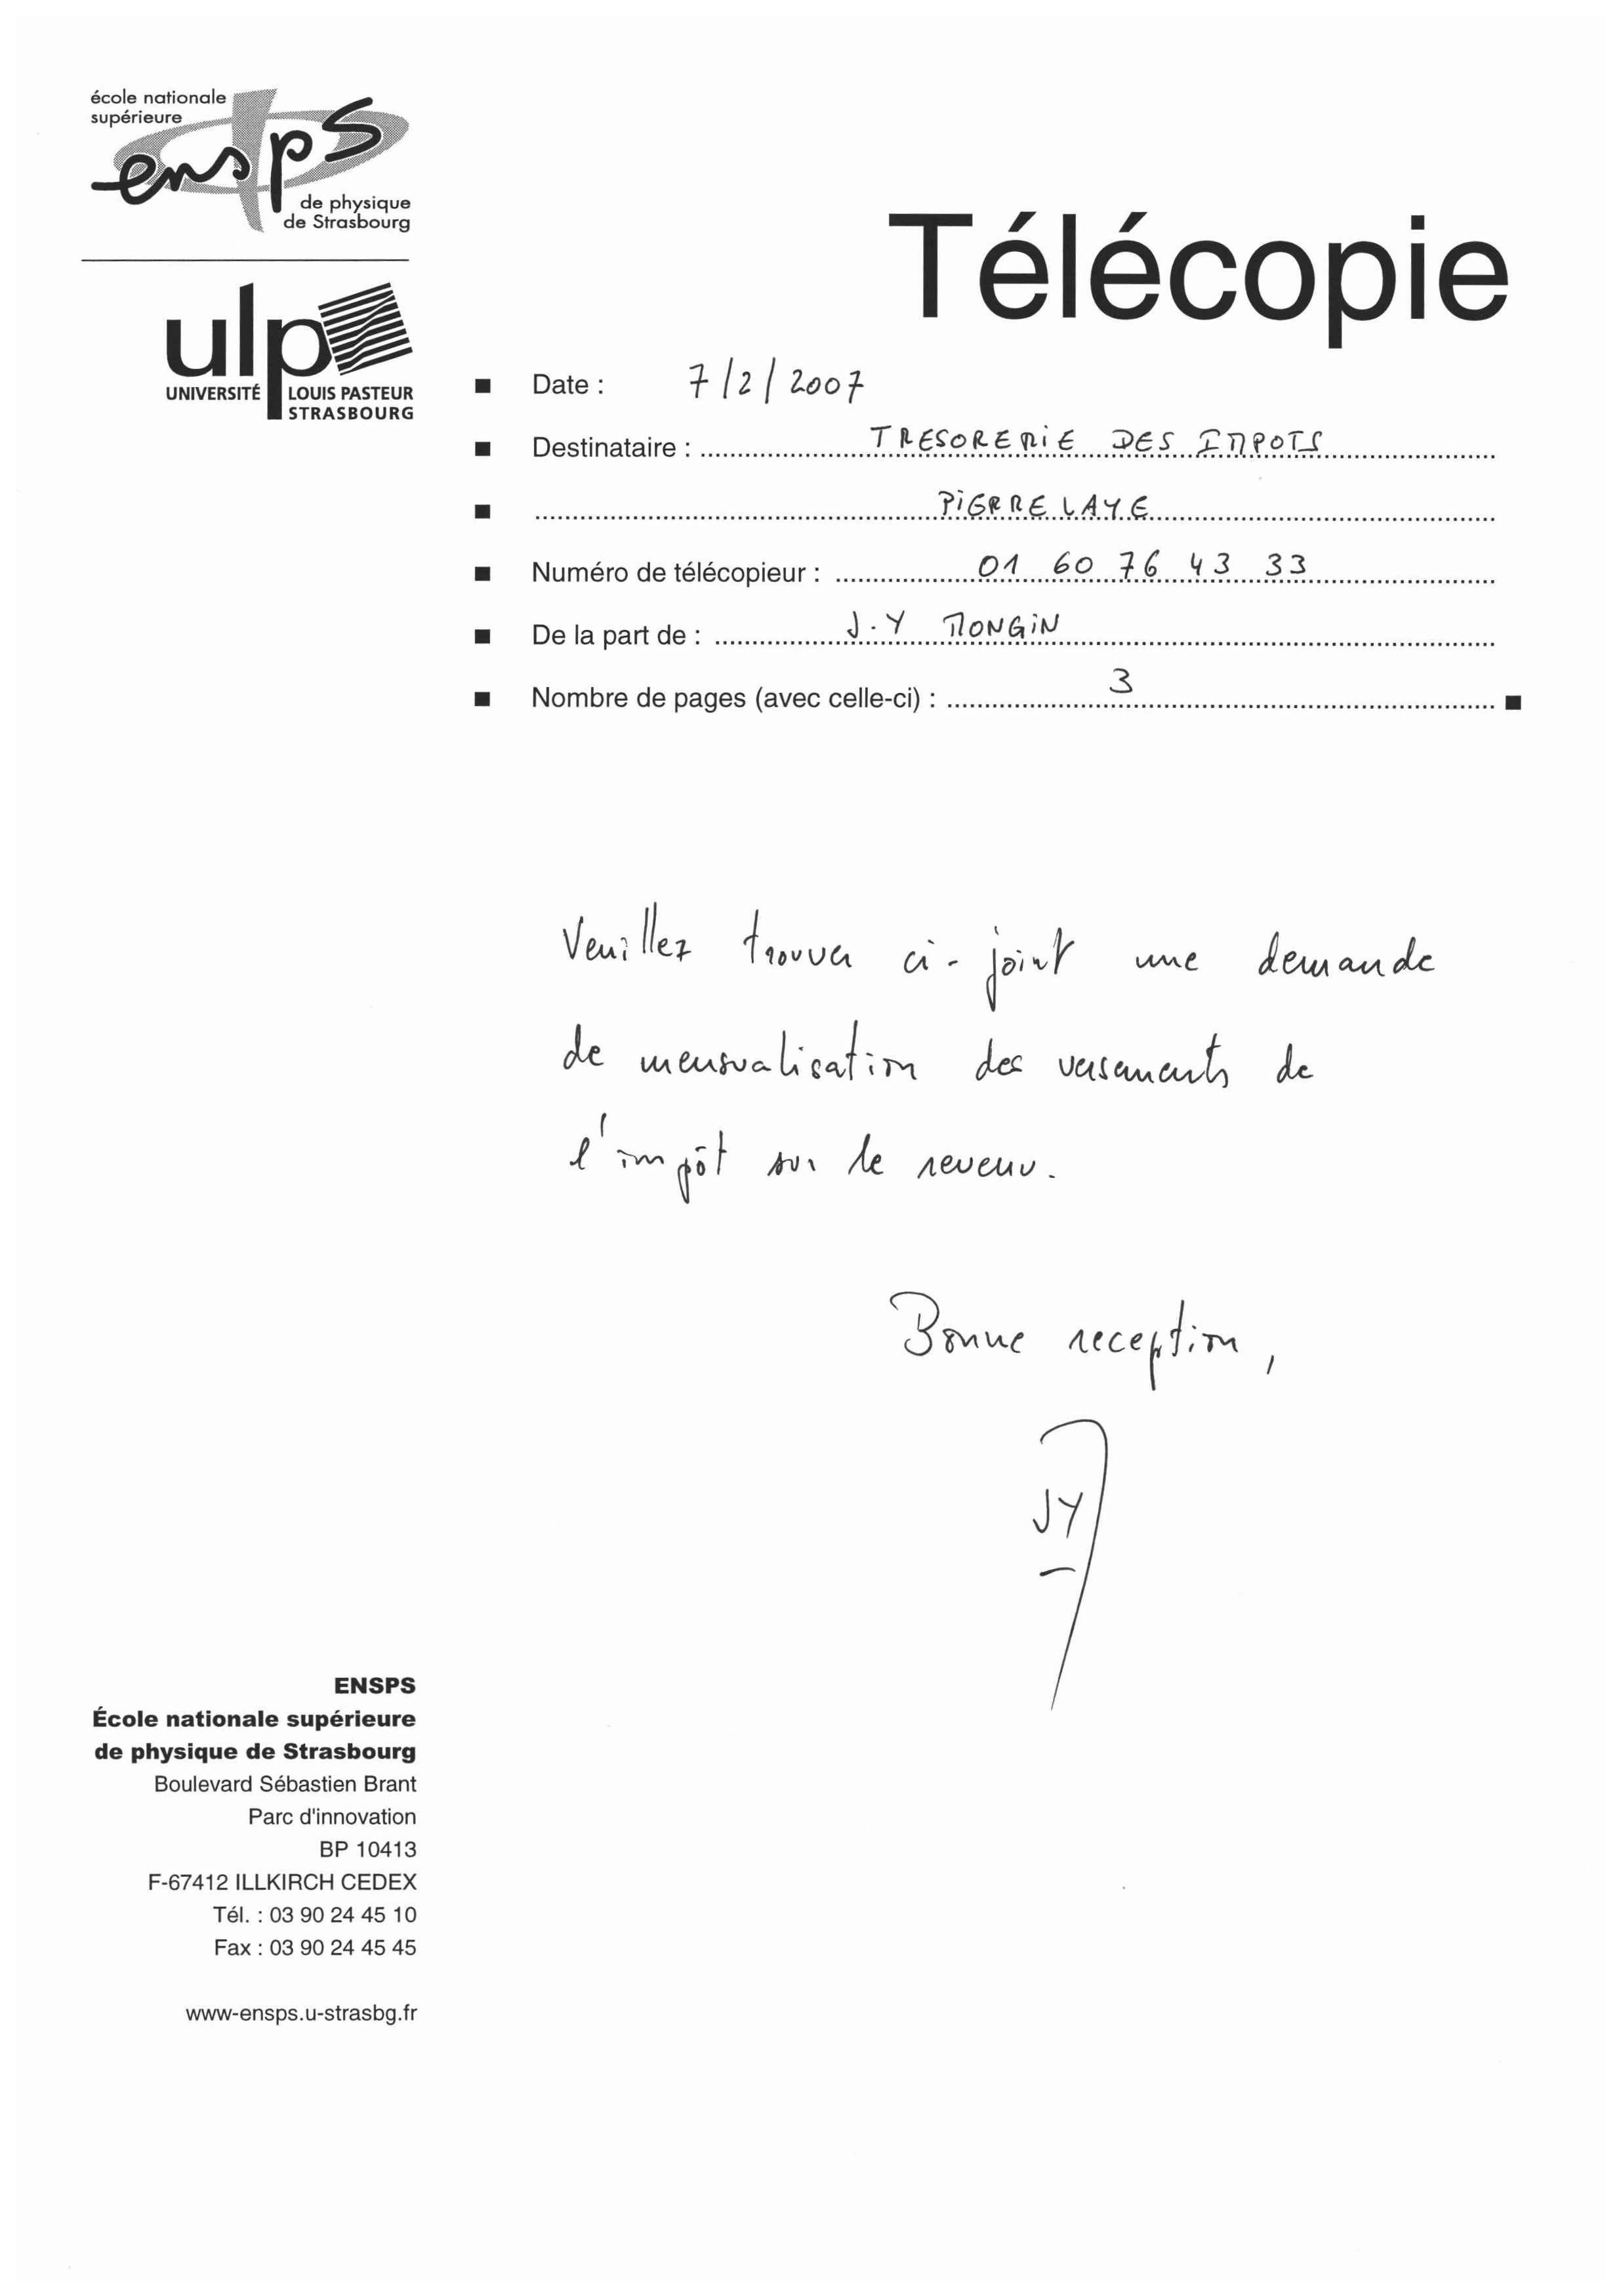 école nationale
supérieure
ensps
de physique
de Strasbourg
ulp
UNIVERSITÉ LOUIS PASTEUR
STRASBOURG
Télécopie
Date : 7/2/2007
Destinataire : TRESORERIE DES IMPOTS
PIERRELAYE
Numéro de télécopieur : 01 60 76 43 33
De la part de : J.Y MONGIN
Nombre de pages (avec celle-ci) : 3
Veuillez trouver ci-joint une demande
de mensualisation des versements de
l'impôt sur le revenu.
Bonne reception,
JY
ENSPS
École nationale supérieure
de physique de Strasbourg
Boulevard Sébastien Brant
Parc d'innovation
BP 10413
F-67412 ILLKIRCH CEDEX
Tél. : 03 90 24 45 10
Fax : 03 90 24 45 45
www-ensps.u-strasbg.fr